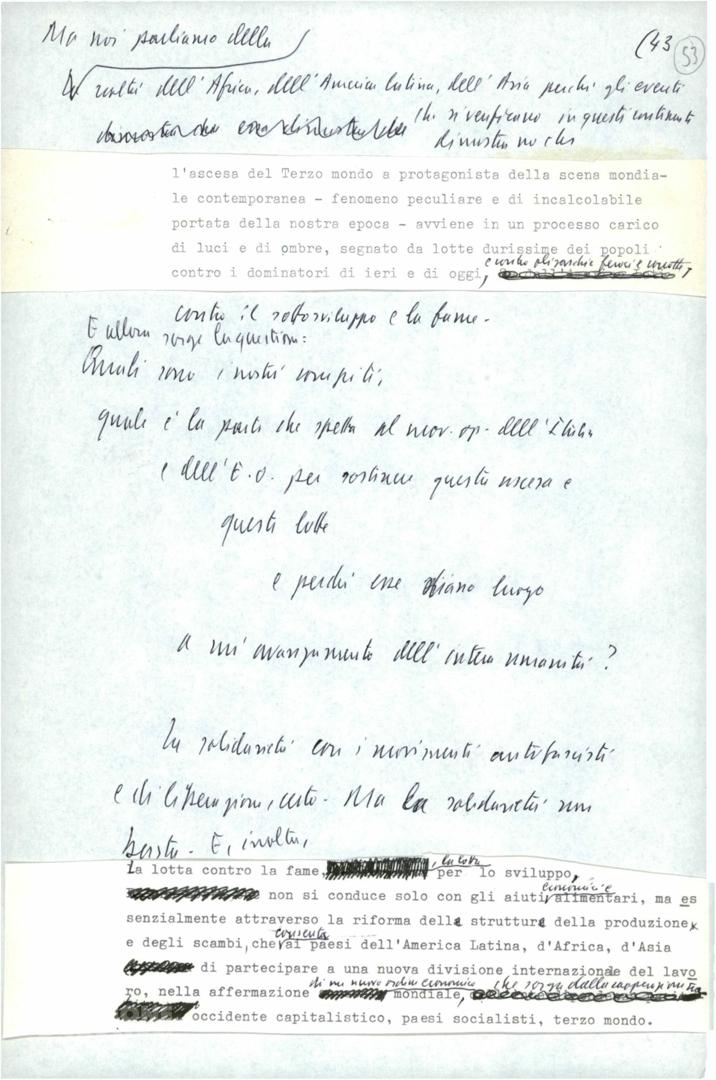 Ma noi parliamo della
(43
53
realtà dell'Africa, dell'America latina, dell'Asia perché gli eventi
che si verificano in questi continenti
dimostrano che
l'ascesa del Terzo mondo a protagonista della scena mondia-
le contemporanea - fenomeno peculiare e di incalcolabile
portata della nostra epoca - avviene in un processo carico
di luci e di ombre, segnato da lotte durissime dei popoli
e contro oligarchie feroci e corrotte,
contro i dominatori di ieri e di oggi,
contro il sottosviluppo e la fame.
E allora sorge la questione:
Quali sono i nostri compiti,
quale è la parte che spetta al mov. op. dell'Italia
e dell'E.O. per sostenere questa ascesa e
queste lotte
e perché esse diano luogo
a un avanzamento dell'intera umanità?
La solidarietà con i movimenti antifascisti
e di liberazione, certo. Ma la solidarietà non
basta. E, inoltre,
la lotta
La lotta contro la fame, per lo sviluppo,
economici e
non si conduce solo con gli aiuti alimentari, ma es
senzialmente attraverso la riforma delle strutture della produzione
consenta
e degli scambi, che ai paesi dell'America Latina, d'Africa, d'Asia
di partecipare a una nuova divisione internazionale del lavo
di un nuovo ordine economico che sorga dalla cooperazione tra
ro, nella affermazione mondiale,
occidente capitalistico, paesi socialisti, terzo mondo.